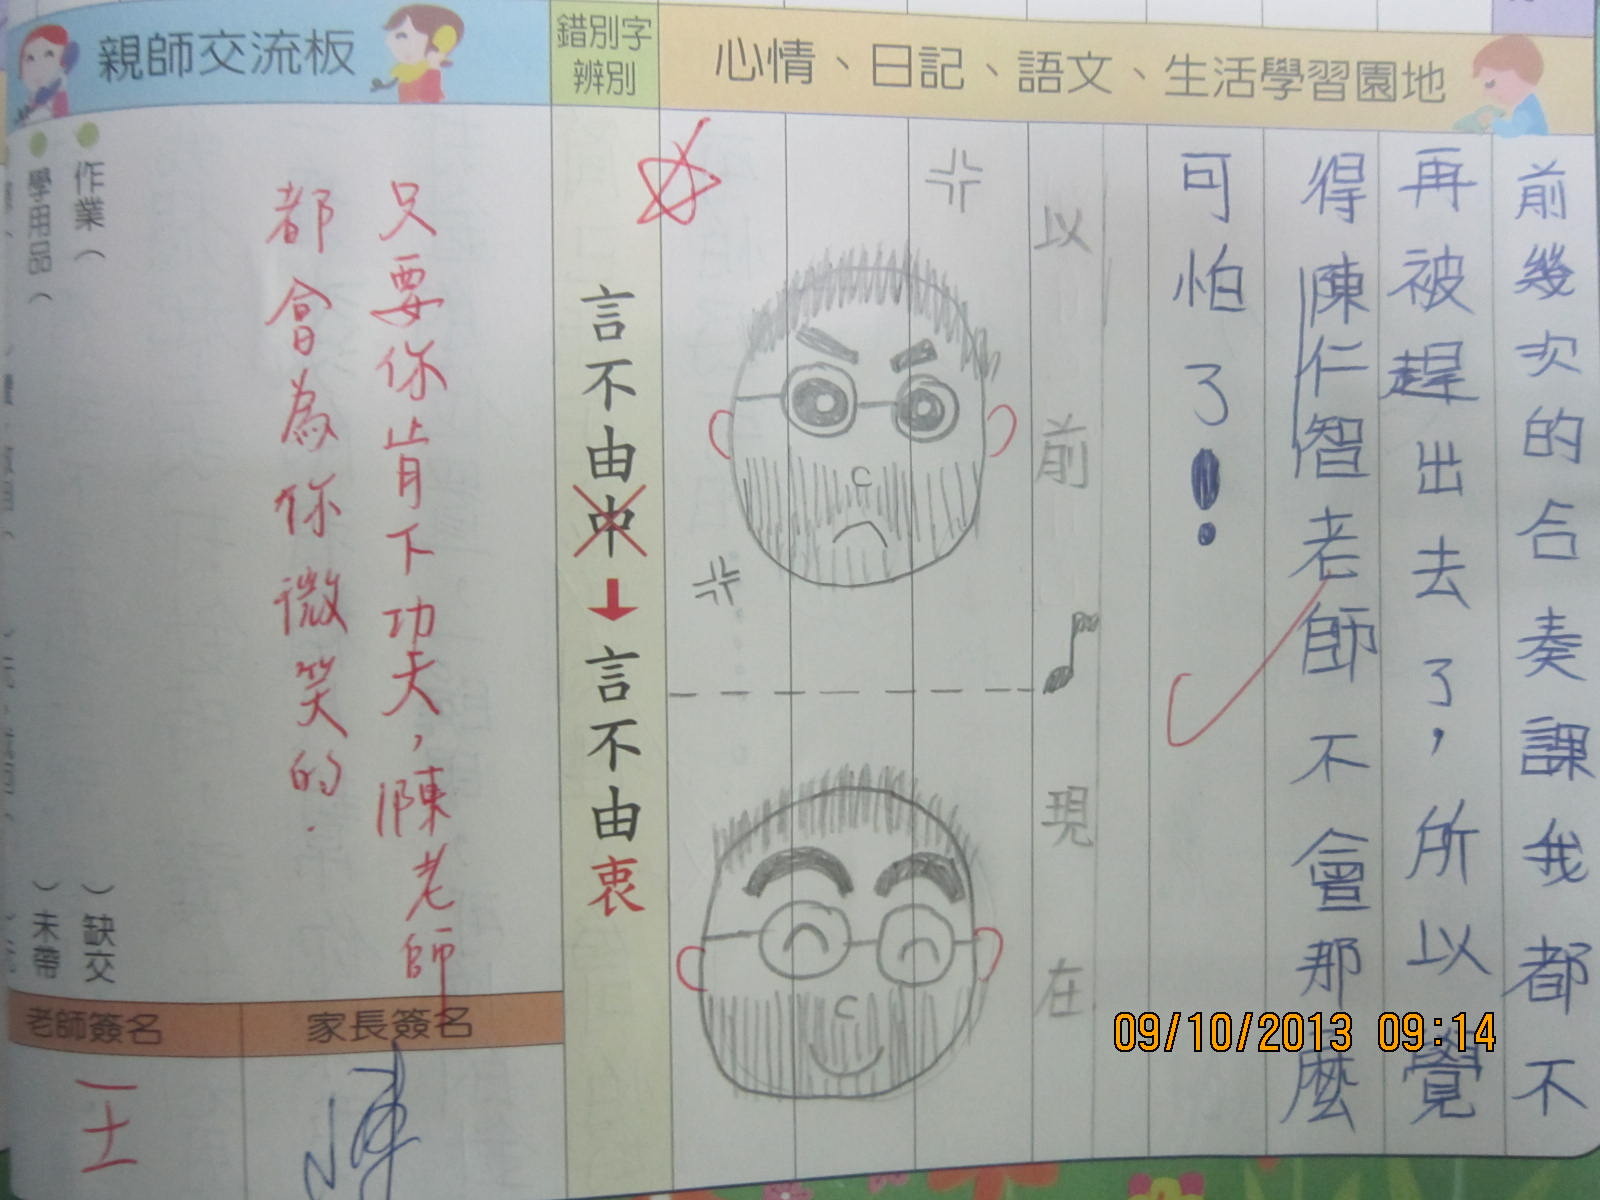 心情、日記、語文、生活學習園地
前幾次的合奏課我都不
再被趕出去了，所以覺
得陳仁智老師不會那麼
可怕了！
以前
現在
錯別字
辨別
言不由中
言不由衷
親師交流板
只要你肯下功夫，陳老師
都會為你微笑的.
作業（　　　　）缺交
學用品（　　　　）未帶
老師簽名
家長簽名
陳
09/10/2013 09:14